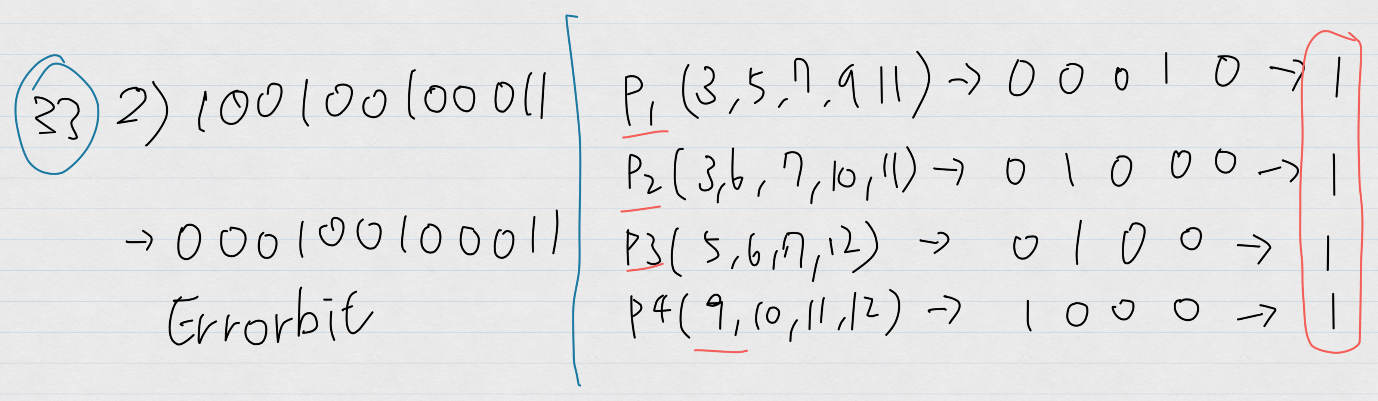 33 2) 100100100011
→ 000100100011
Errorbit
P1 (3,5,7,9 11) → 0 0 0 1 0 → 1
P2 (3,6,7,10,11) → 0 1 0 0 0 → 1
P3( 5,6,7,12) → 0 1 0 0 → 1
P4( 9,10,11,12) → 1 0 0 0 → 1